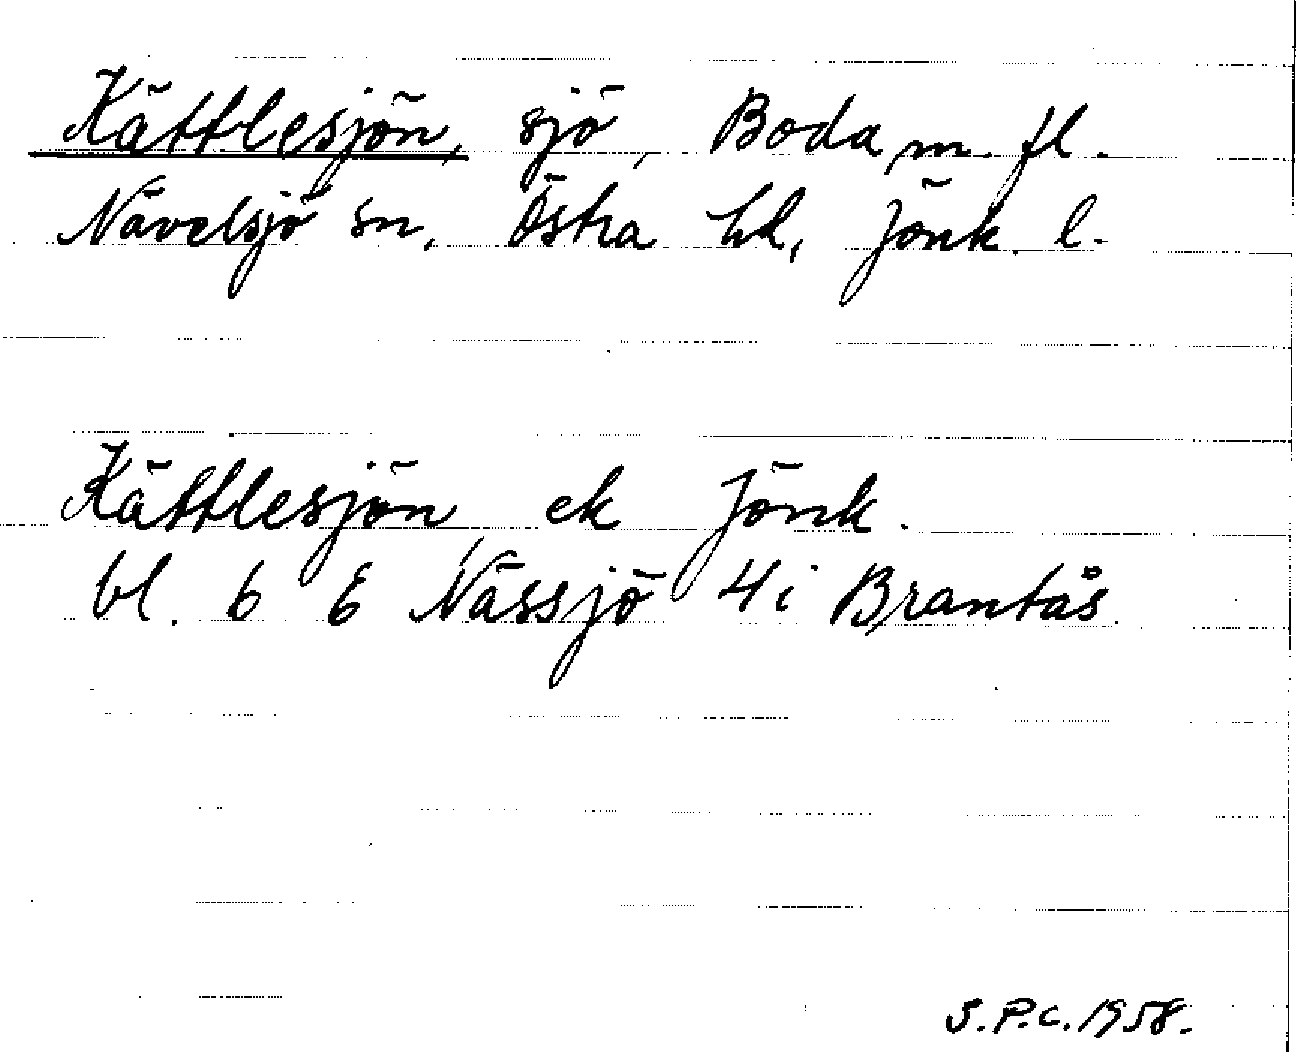 Kättlesjön, sjö, Boda m. fl.
Nävelsjö sn, Östra hd, Jönk. l.
Kättlesjön ek Jönk.
bl. 6 E Nässjö 4i Brantås
S.P.C. 1958.